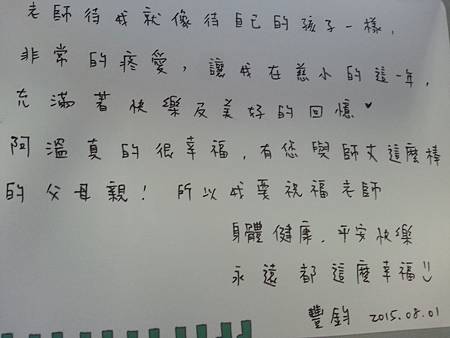 老師待我就像待自己的孩子一樣,
非常的疼愛,讓我在慈小的這一年,
充滿著快樂及美好的回憶♥
阿溫真的很幸福,有您與師丈這麼棒
的父母親!所以我要祝福老師
身體健康.平安快樂
永遠都這麼幸福
豐鈞 2015.08.01